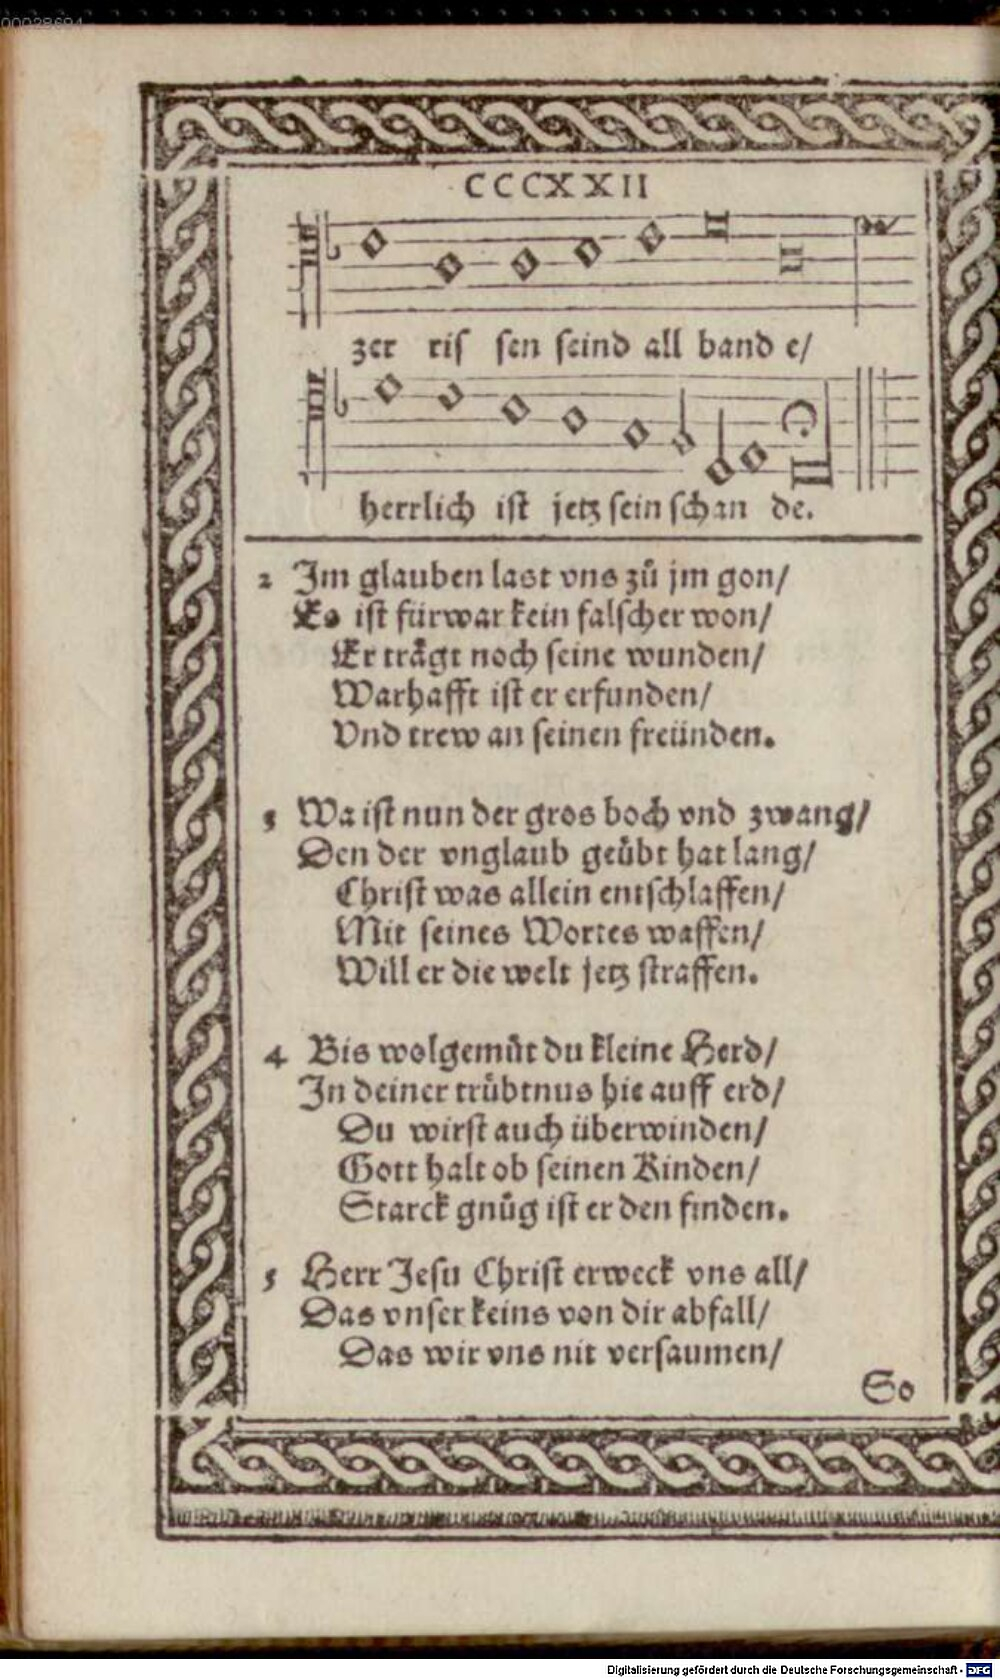 00028694
CCCXXII
zer riſ ſen ſeind all band e/
herrlich iſt jetz ſein ſchan de.
2 Im glauben last vns zuͦ jm gon/
Es iſt fürwar kein falſcher won/
Er traͤgt noch ſeine wunden/
Warhafft iſt er erfunden/
Vnd trew an ſeinen freünden.
3 Wa iſt nun der gros boch vnd zwang/
Den der vnglaub geuͤbt hat lang/
Chriſt was allein entſchlaffen/
Mit ſeines Wortes waffen/
Will er die welt jetz ſtraffen.
4 Bis wolgemuͦt du kleine Herd/
In deiner truͤbtnus hie auff erd/
Du wirſt auch überwinden/
Gott halt ob ſeinen Kinden/
Starck gnuͦg iſt er den finden.
5 Herr Jeſu Chriſt erweck vns all/
Das vnſer keins von dir abfall/
Das wir vns nit verſaumen/
So
Digitalisierung gefördert durch die Deutsche Forschungsgemeinschaft - DFG